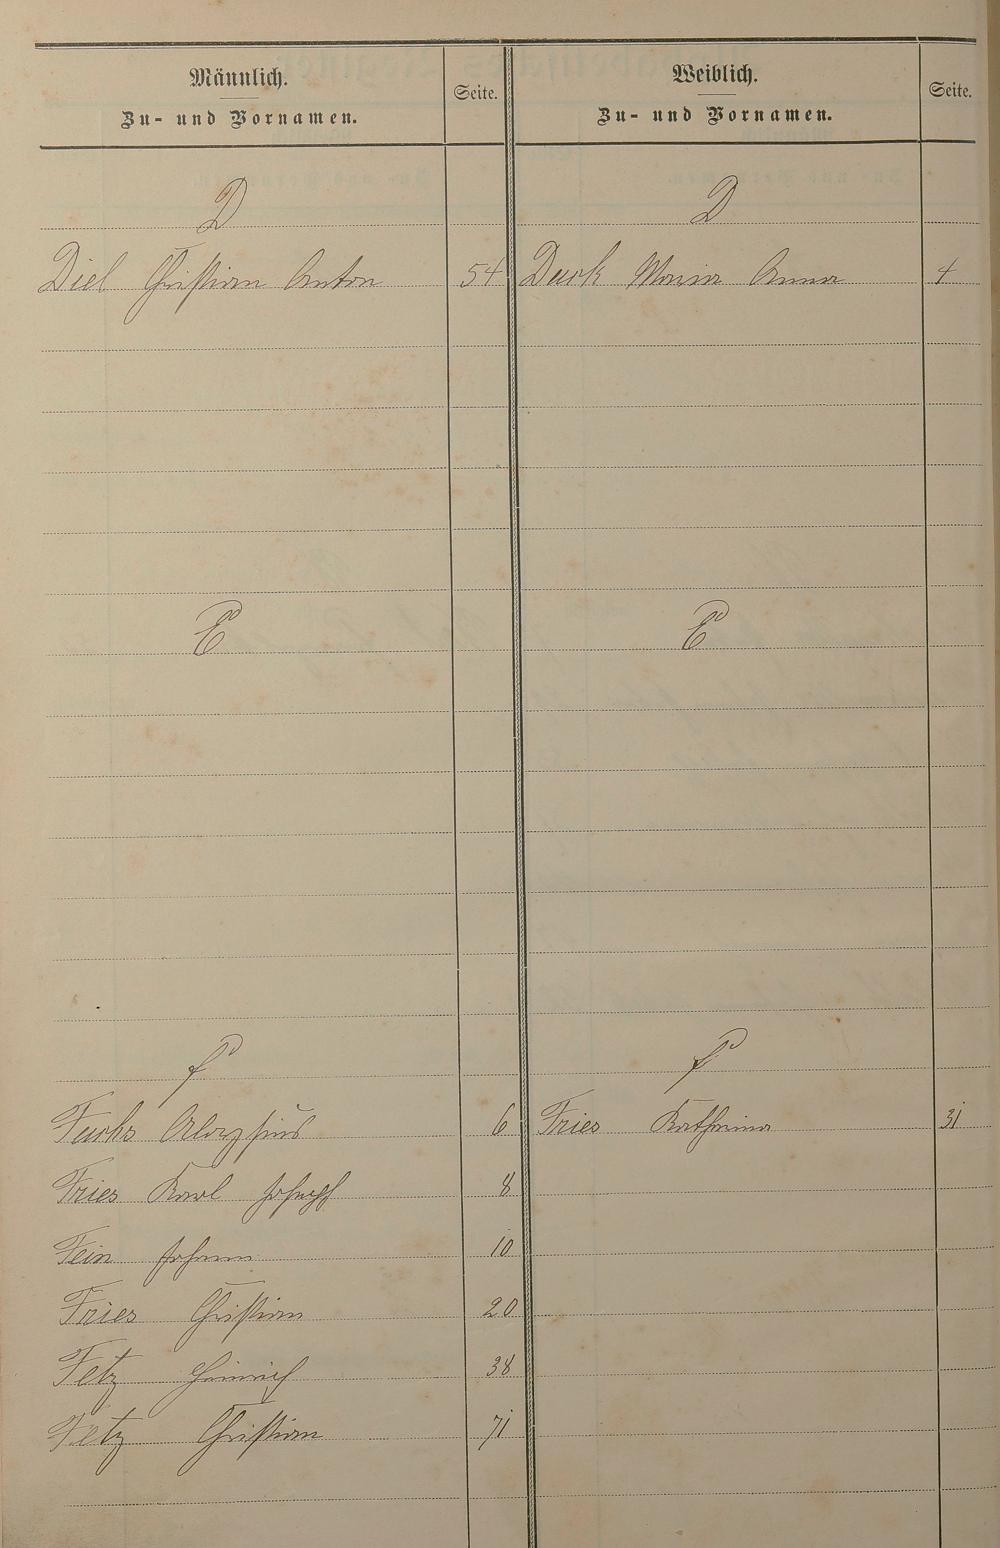 Männlich.
Zu- und Vornamen.
Seite.
Weiblich.
Zu- und Vornamen.
Seite.
D
D
Diel Christian Anton 54
Duck Maria Anna 4
E
E
F
F
Fuchs Aloysius 6
Fries Katharina 31
Fries Karl Joseph 8
Fein Johann 10
Fries Christian 20
Fetz Heinrich 38
Fetz Christian 71